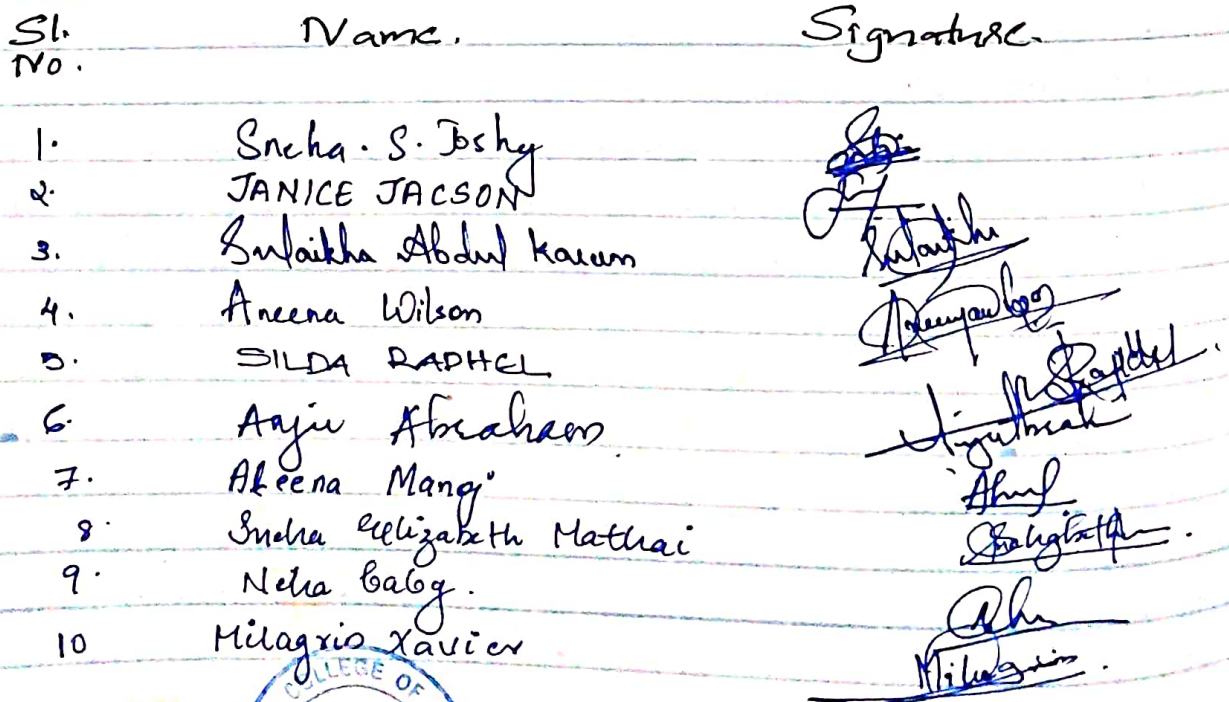 Sl. No. Name. Signature.
1. Sneha. S. Joshy
2. JANICE JACSON
3. Sulaikha Abdul Karum Sulaikha
4. Aneena Wilson
5. SILDA RAPHEL
6. Anju Abraham
7. Aleena Manoj
8. Sneha Elizabeth Mathai
9. Neha Baby.
10 Milagrio Xavier Milagrios
COLLEGE OF